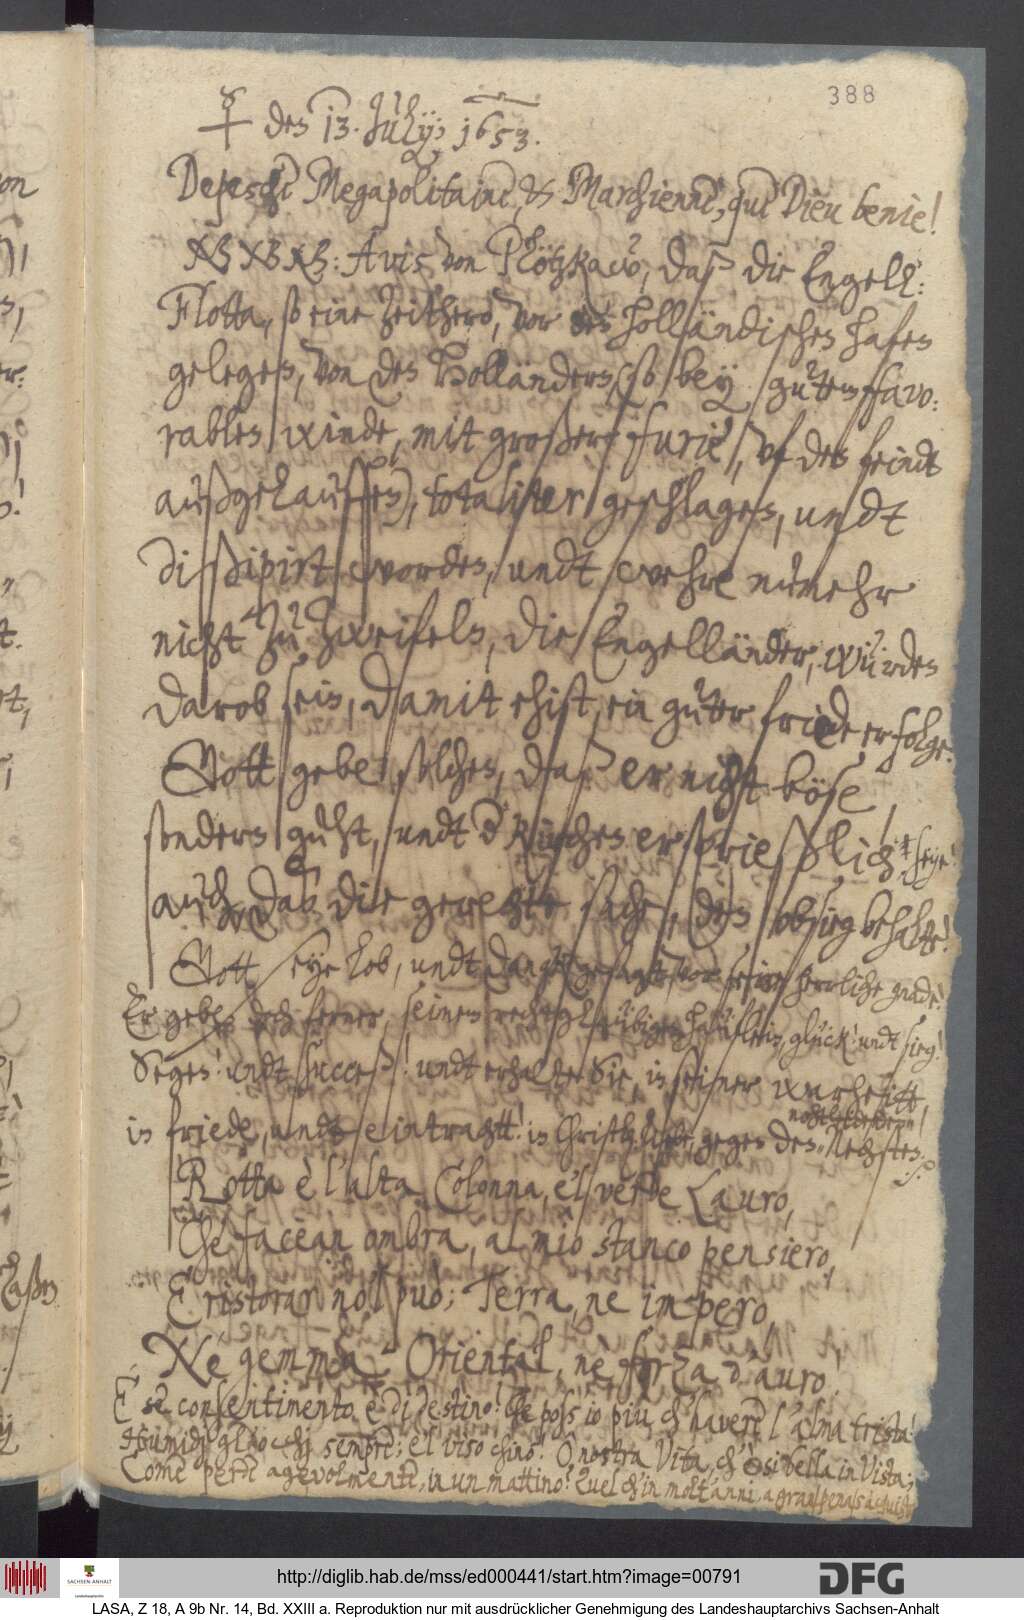 388
☿ den 13. Julÿ; 1653.
Depesche Megapolitaine, & Marchienne, que Dieu benie!
NB NB NB: Avis von Plötzkaw, daß die Engell:
Flotta, so eine zeithero, vor den Holländischen hafen
gelegen, von den Holländern, (so bey gutem favo:
rablen winde, mit großer furie, uf den feindt
außgelauffen), totaliter geschlagen, undt
dißipirt worden, undt wehre numehr
nicht zu zweifeln, die Engelländer, würden
darob sein, damit ehist, ein guter friede erfolge.
Gott gebe solchen, daß er nicht böse
sondern guht, undt der Kirchen ersprießlich seye!
auch, daß die gerechte sache, den obsieg behalte!
Gott seye lob, undt danck gesagt, vor seine herrliche gnade!
Er gebe doch ferner, seinem rechtglaübigen haüflein, glück! undt sieg!
Segen! undt success! undt erhalte Sie, in seiner warheitt,
in friede, undt eintracht! in Christlicher liebe, gegen den Nechsten.
nohtleidenden
Rotta è l'alta Colonna, e'l verde Lauro,
Che facean ombra, al mio stanco pensiero,
E ristorar nol può; Terra, ne impero,
Ne gemma Oriental, ne forza d'auro!
E se consentimento è di destino! Che poss' io piu, ch' havere l'alma trista!
Humidi gl'occhi sempre; e'l viso chino! O nostra Vita, ch' è sì bella in Vista;
Come perde agevolmente, in un mattino? Quel ch'in molt' anni, a gran pena s'acquista
http://diglib.hab.de/mss/ed000441/start.htm?image=00791
SACHSEN-ANHALT
Landeshauptarchiv
DFG
LASA, Z 18, A 9b Nr. 14, Bd. XXIII a. Reproduktion nur mit ausdrücklicher Genehmigung des Landeshauptarchivs Sachsen-Anhalt